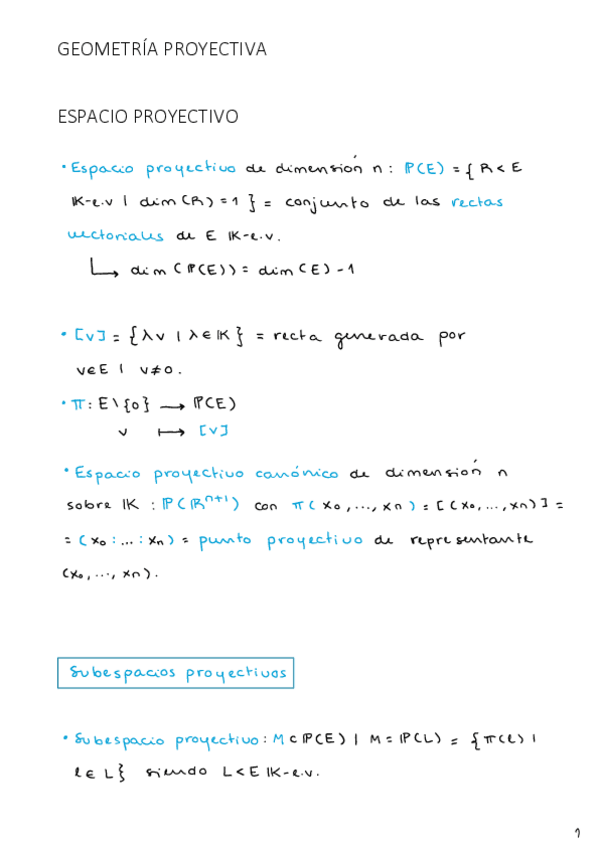 GEOMETRÍA PROYECTIVA
ESPACIO PROYECTIVO
• Espacio proyectivo de dimensión n : ℙ(E) = { R < E
𝕂-e.v | dim(R) = 1 } = conjunto de las rectas
vectoriales de E 𝕂-e.v.
↳ dim(ℙ(E)) = dim(E) - 1
• [v] = { λv | λ ∈ 𝕂 } = recta generada por
v ∈ E | v ≠ 0.
• π : E \ {0} → ℙ(E)
v ↦ [v]
• Espacio proyectivo canónico de dimensión n
sobre 𝕂 : ℙ(ℝⁿ⁺¹) con π(x₀, ..., xₙ) = [(x₀, ..., xₙ)] =
= (x₀ : ... : xₙ) = punto proyectivo de representante
(x₀, ..., xₙ).
Subespacios proyectivos
• Subespacio proyectivo : M ⊂ ℙ(E) | M = ℙ(L) = { π(l) |
l ∈ L } siendo L < E 𝕂-e.v.
1